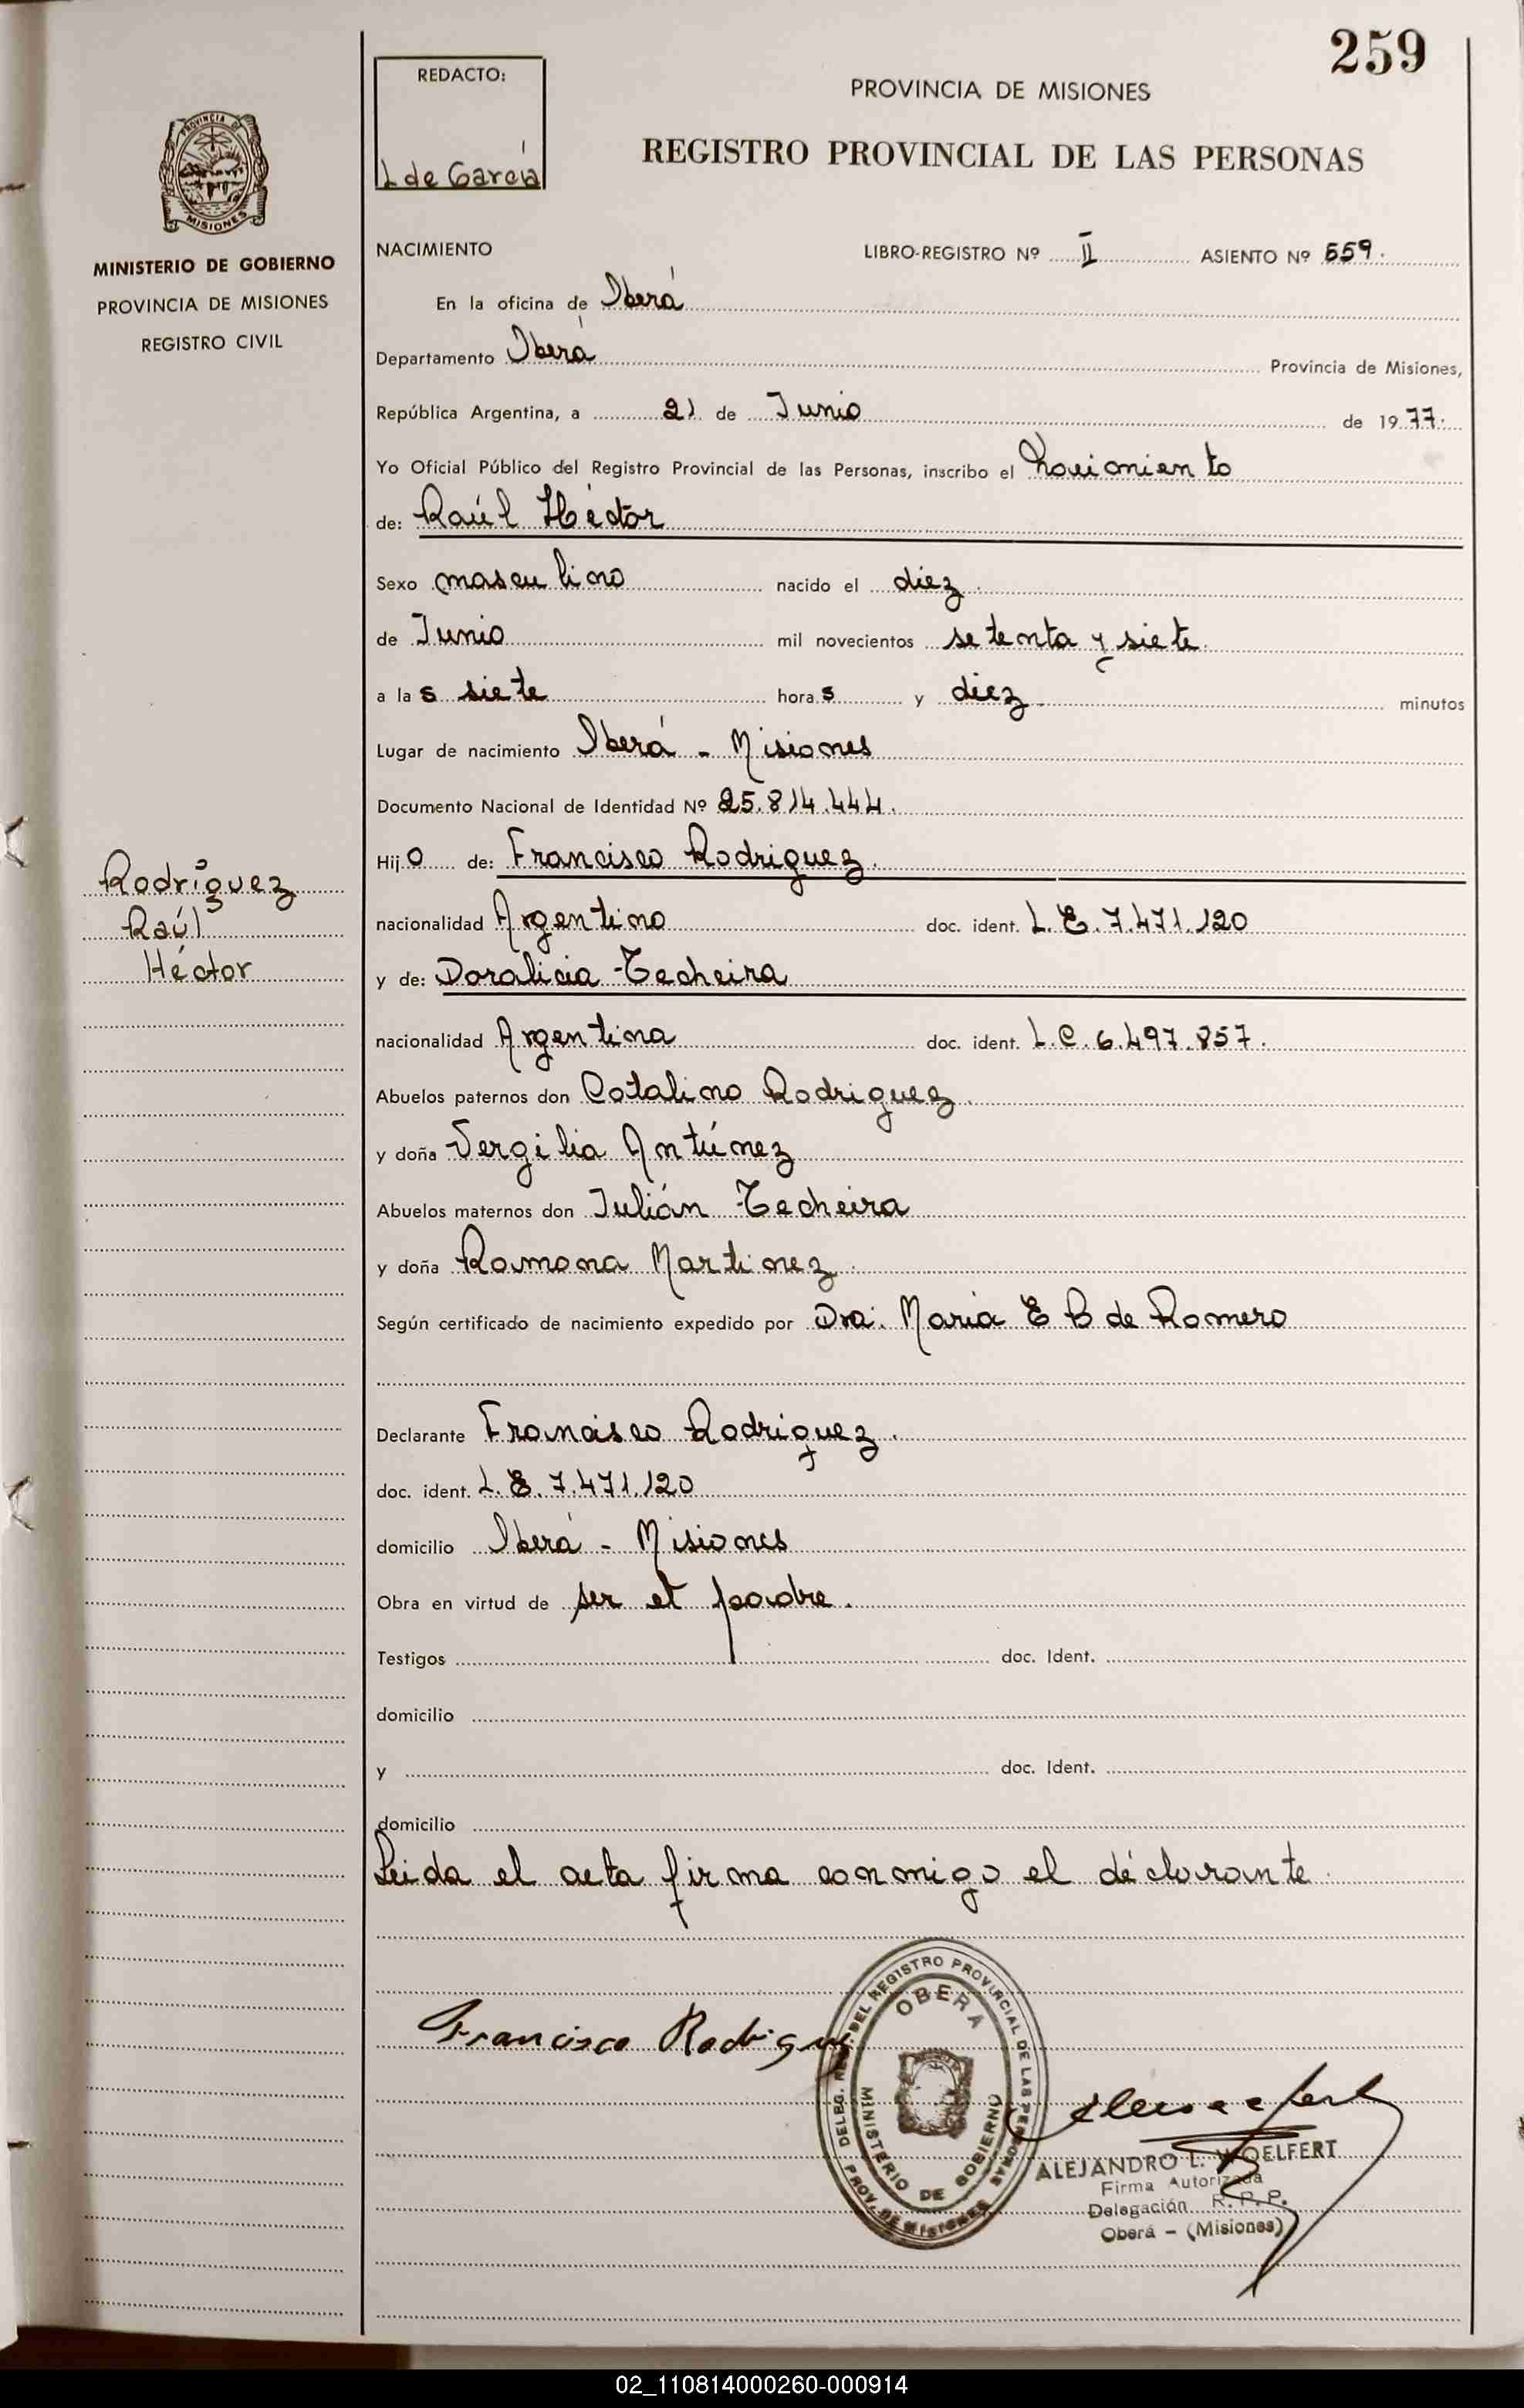 259
REDACTO:
L de García
PROVINCIA DE MISIONES
REGISTRO PROVINCIAL DE LAS PERSONAS
PROVINCIA DE
MISIONES
MINISTERIO DE GOBIERNO
PROVINCIA DE MISIONES
REGISTRO CIVIL
NACIMIENTO LIBRO-REGISTRO Nº II ASIENTO Nº 559.
En la oficina de Oberá
Departamento Oberá Provincia de Misiones,
República Argentina, a 21 de Junio de 1977.
Yo Oficial Público del Registro Provincial de las Personas, inscribo el Nacimiento
de: Raúl Héctor
Sexo masculino nacido el diez
de Junio mil novecientos setenta y siete.
a las siete horas y diez minutos
Lugar de nacimiento Oberá - Misiones
Documento Nacional de Identidad Nº 25.814.444.
Hijo de: Francisco Rodriguez.
Rodríguez
Raúl
Héctor
nacionalidad Argentino doc. ident. L.E. 7.471.120
y de: Doralicia Techeira
nacionalidad Argentina doc. ident. L.C. 6.497.857.
Abuelos paternos don Catalino Rodriguez.
y doña Vergilia Antúnez
Abuelos maternos don Julián Techeira
y doña Ramona Martinez.
Según certificado de nacimiento expedido por Dra. María E B de Romero
Declarante Francisco Rodriguez.
doc. ident. L.E. 7.471.120
domicilio Oberá - Misiones
Obra en virtud de ser el padre.
Testigos doc. Ident.
domicilio
y doc. Ident.
domicilio
Leida el acta firma conmigo el déclarante.
Francisco Rodriguez
DELEG. DEL REGISTRO PROVINCIAL DE LAS PERSONAS
OBERA
MINISTERIO DE GOBIERNO
PROV. DE MISIONES
ALEJANDRO L. WOELFERT
Firma Autorizada
Delegación R.P.P.
Oberá - (Misiones)
02_110814000260-000914